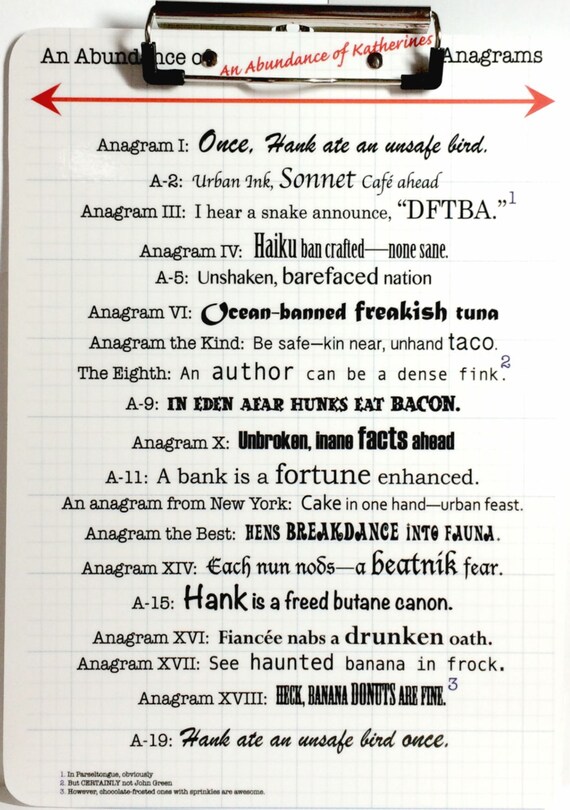 An Abundance of Anagrams
An Abundance of Katherines
Anagram I: Once, Hank ate an unsafe bird.
A-2: Urban Ink, Sonnet Café ahead
Anagram III: I hear a snake announce, “DFTBA.”1
Anagram IV: Haiku ban crafted—none sane.
A-5: Unshaken, barefaced nation
Anagram VI: Ocean-banned freakish tuna
Anagram the Kind: Be safe—kin near, unhand taco.
The Eighth: An author can be a dense fink.2
A-9: IN EDEN AFAR HUNKS EAT BACON.
Anagram X: Unbroken, inane facts ahead
A-11: A bank is a fortune enhanced.
An anagram from New York: Cake in one hand—urban feast.
Anagram the Best: HENS BREAKDANCE INTO FAUNA.
Anagram XIV: Each nun nods—a beatnik fear.
A-15: Hank is a freed butane canon.
Anagram XVI: Fiancée nabs a drunken oath.
Anagram XVII: See haunted banana in frock.
Anagram XVIII: HECK, BANANA DONUTS ARE FINE.3
A-19: Hank ate an unsafe bird once.
1. In Parseltongue, obviously
2. But CERTAINLY not John Green
3. However, chocolate-frosted ones with sprinkles are awesome.